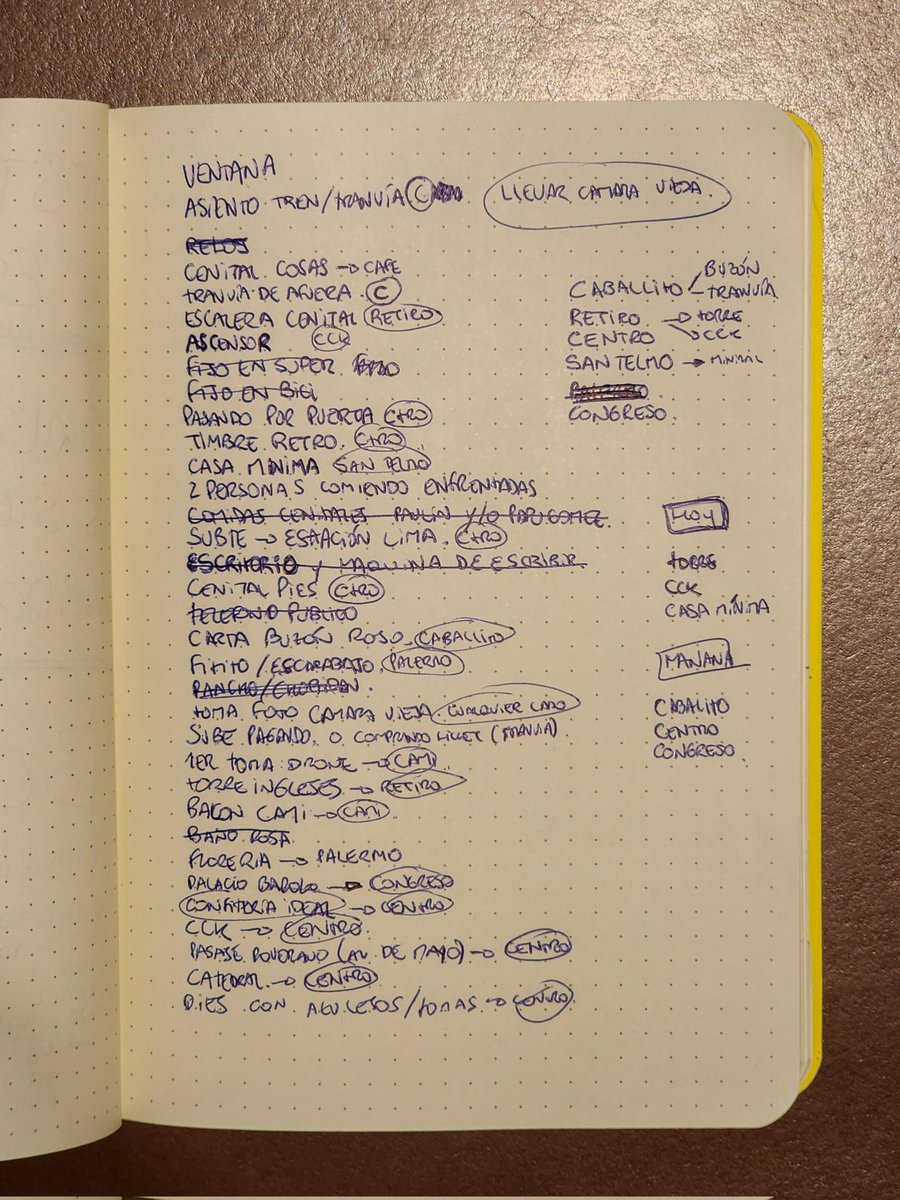 VENTANA
ASIENTO TREN/TRANVÍA C
LLEVAR CAMARA VIEJA
RELOJ
CENITAL COSAS → CAFE
TRANVIA DE AFUERA. C
ESCALERA CENITAL RETIRO
ASCENSOR CCK
FIJO EN SUPER
FIJO EN BICI
PASANDO POR PUERTA CTRO
TIMBRE RETRO. CTRO
CASA MINIMA SAN TELMO
2 PERSONAS COMIENDO ENFRENTADAS
COMIDAS CENITALES PAULIN Y/O PAPU GOMEZ.
SUBTE → ESTACIÓN LIMA. CTRO
ESCRITORIO Y MAQUINA DE ESCRIBIR
CENITAL PIES CTRO
TELEFONO PUBLICO
CARTA BUZÓN ROJO. CABALLITO
FITITO/ESCARABAJO PALERMO
TOMA FOTO CAMARA VIEJA. CUALQUIER LADO
SUBE PAGANDO O COMPRANDO TICKET (TRANVIA)
1ER TOMA DRONE → CAMI
TORRE INGLESES → RETIRO
BALCON CAMI → CAMI
BAÑO ROSA
FLORERIA → PALERMO
PALACIO BAROLO → CONGRESO
CONFITERIA IDEAL → CENTRO
CCK → CENTRO.
PASAJE ROVERANO (AV. DE MAYO) → CENTRO
CATEDRAL → CENTRO
PIES CON /TOMAS → CENTRO
BUZÓN
CABALLITO – TRANVÍA
RETIRO → TORRE
CENTRO → CCK
SAN TELMO → MINIMAL
CONGRESO.
HOY
TORRE
CCK
CASA MÍNIMA
MAÑANA
CABALITO
CENTRO
CONGRESO